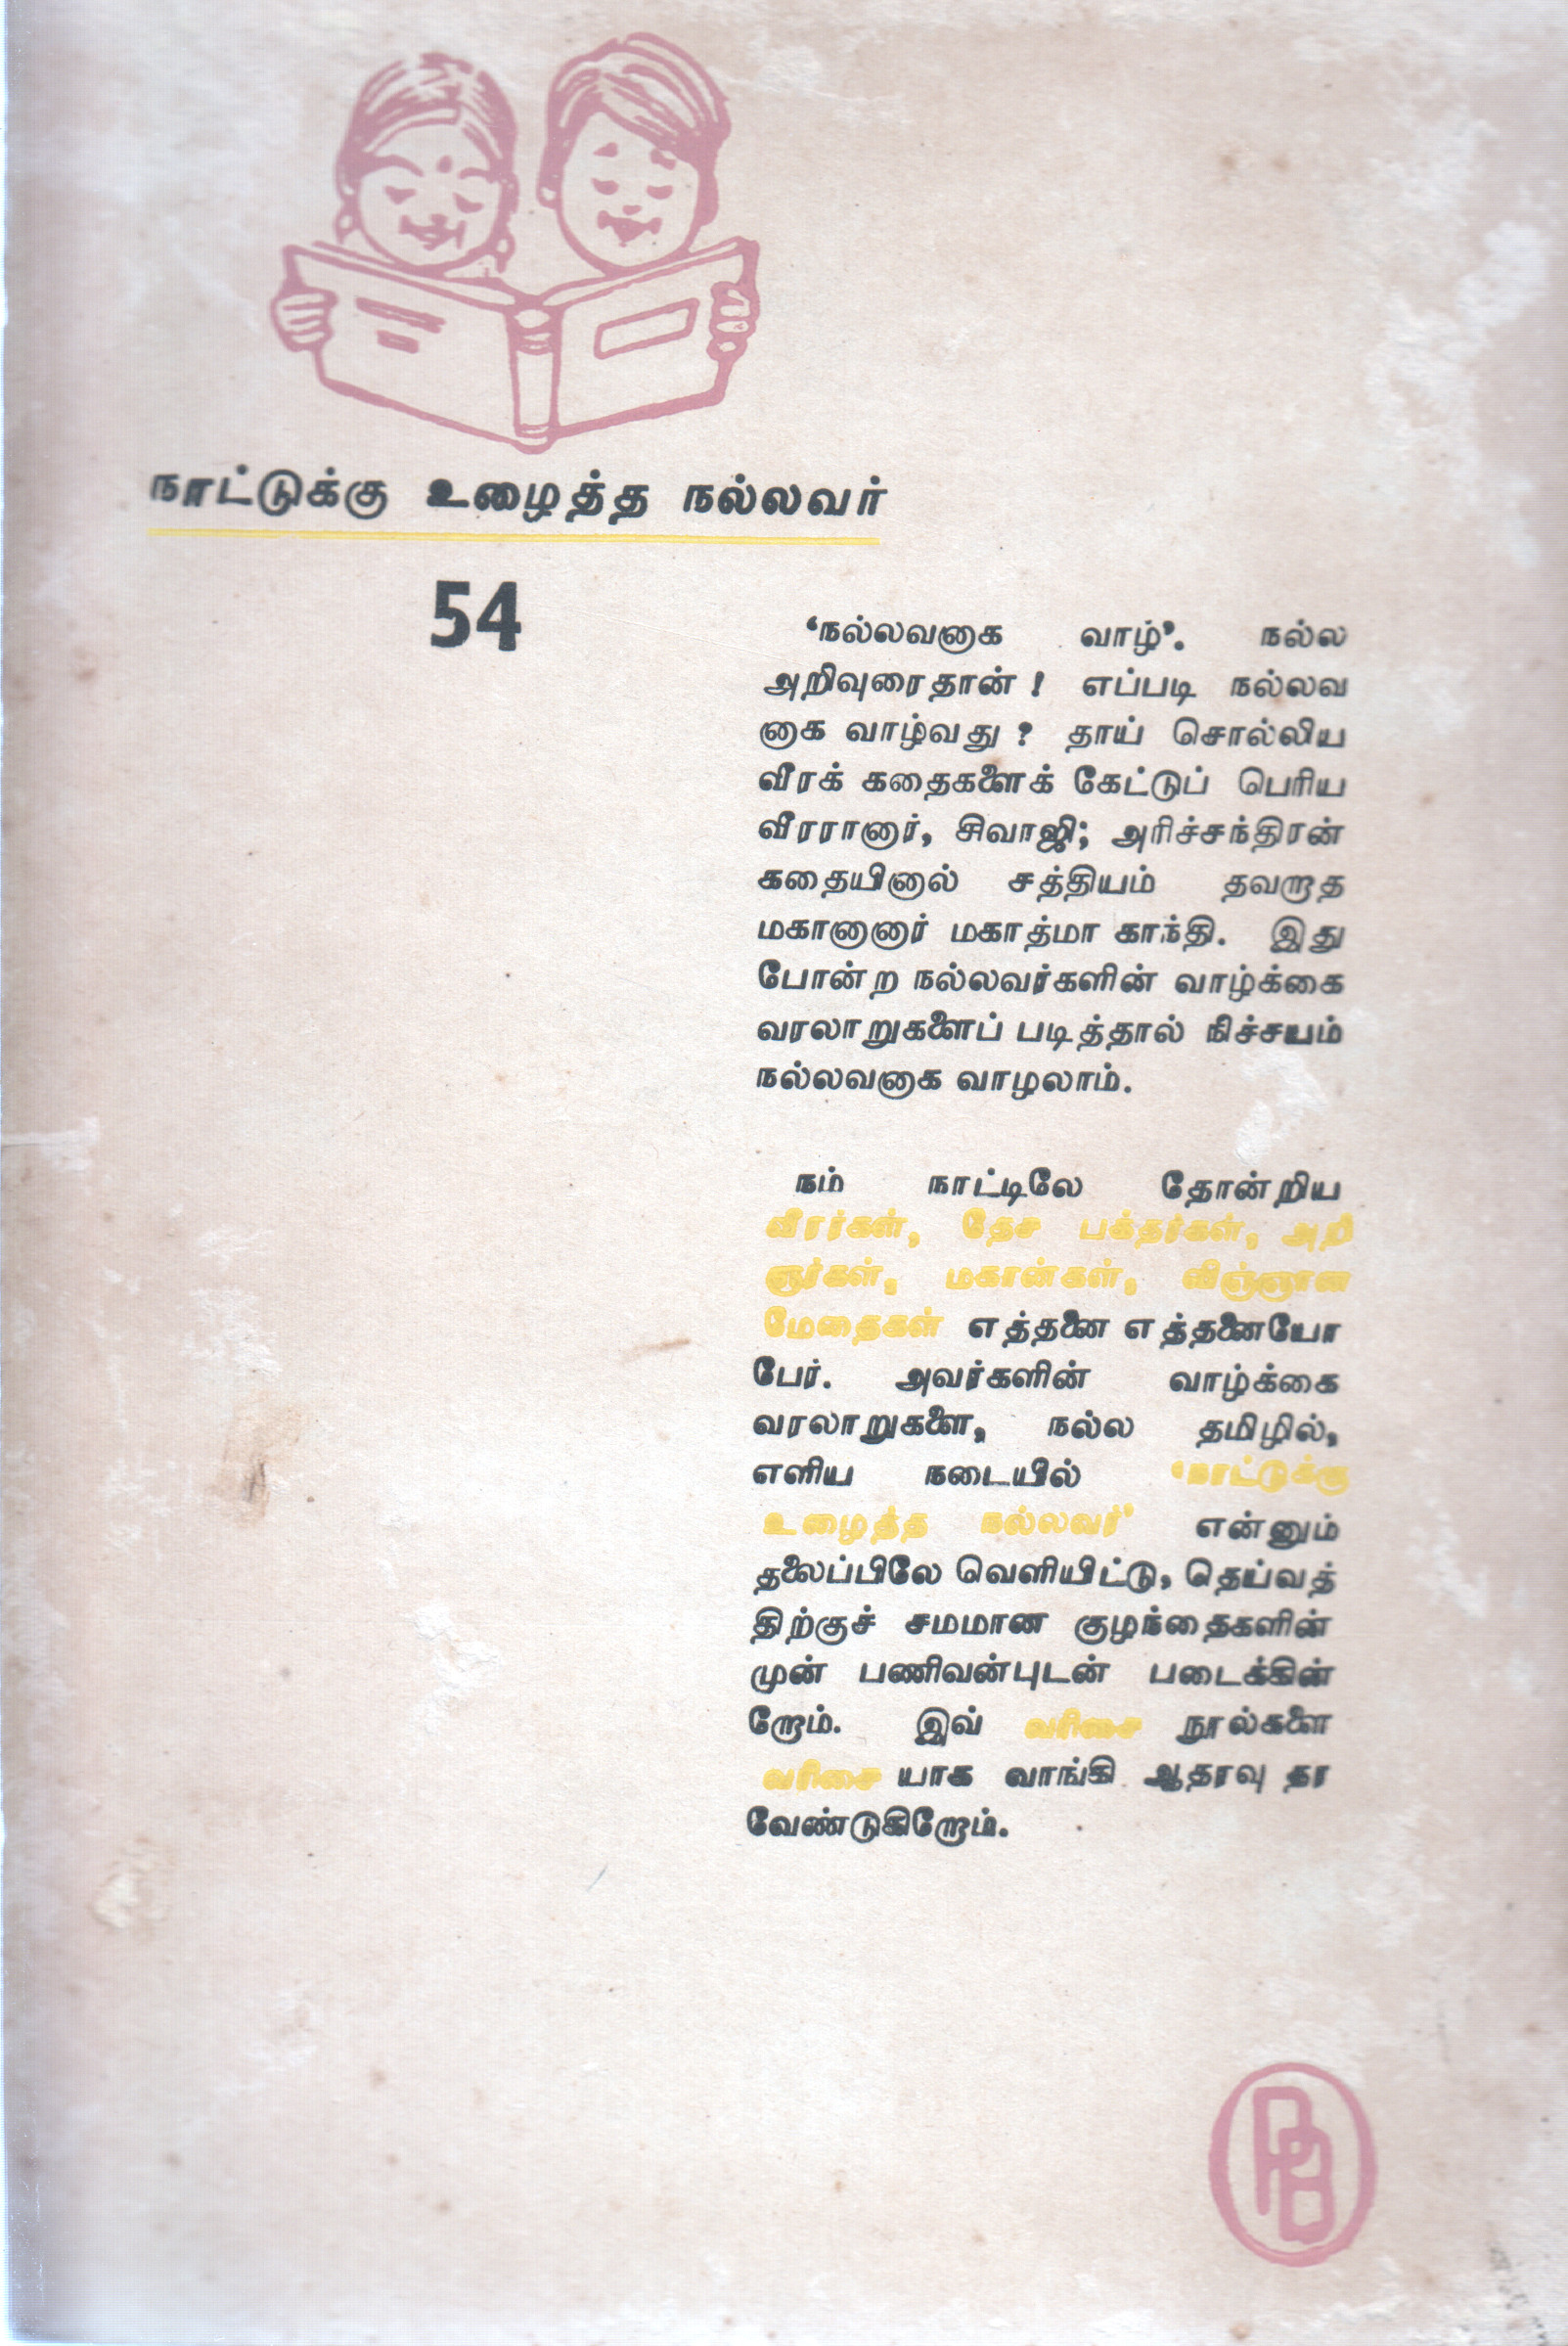 நாட்டுக்கு உழைத்த நல்லவர்
54
‘நல்லவனாக வாழ்’. நல்ல
அறிவுரைதான் ! எப்படி நல்லவ
னாக வாழ்வது ? தாய் சொல்லிய
வீரக் கதைகளைக் கேட்டுப் பெரிய
வீரரானார், சிவாஜி; அரிச்சந்திரன்
கதையினால் சத்தியம் தவறாத
மகானானார் மகாத்மா காந்தி. இது
போன்ற நல்லவர்களின் வாழ்க்கை
வரலாறுகளைப் படித்தால் நிச்சயம்
நல்லவனாக வாழலாம்.
நம் நாட்டிலே தோன்றிய
வீரர்கள், தேச பக்தர்கள், அறி
ஞர்கள், மகான்கள், விஞ்ஞான
மேதைகள் எத்தனை எத்தனையோ
பேர். அவர்களின் வாழ்க்கை
வரலாறுகளை, நல்ல தமிழில்,
எளிய நடையில் ‘நாட்டுக்கு
உழைத்த நல்லவர்’ என்னும்
தலைப்பிலே வெளியிட்டு, தெய்வத்
திற்குச் சமமான குழந்தைகளின்
முன் பணிவன்புடன் படைக்கின்
றோம். இவ் வரிசை நூல்களை
வரிசை யாக வாங்கி ஆதரவு தர
வேண்டுகிறோம்.
PB